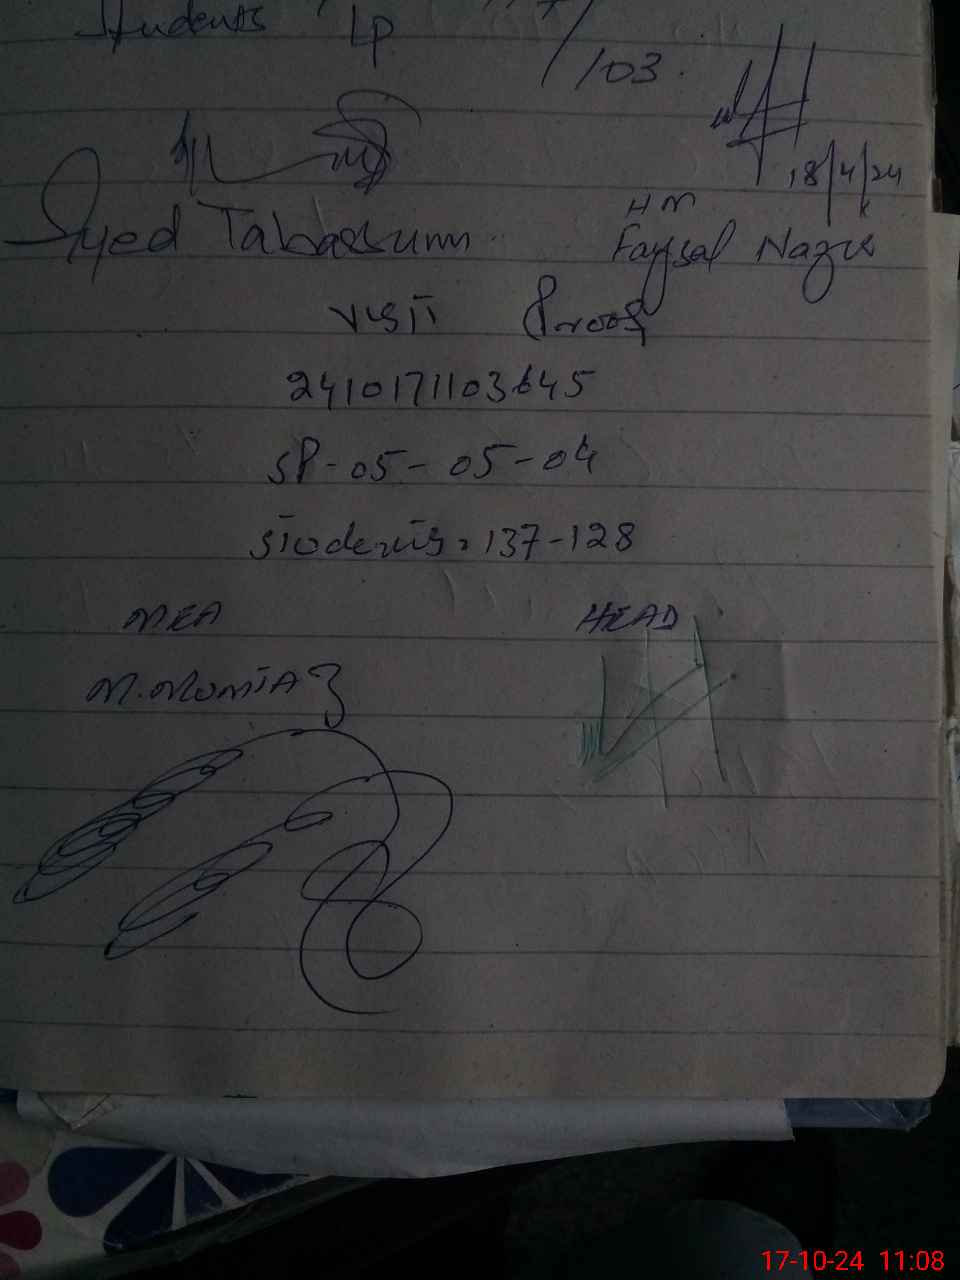 Students Lp
/103.
18/4/24
HM
Syed Tabassum Faysal Nazir
VISIT Proof
2410171103645
SP-05-05-04
Students: 137-128
MEA HEAD
M.MUMTAZ
17-10-24 11:08